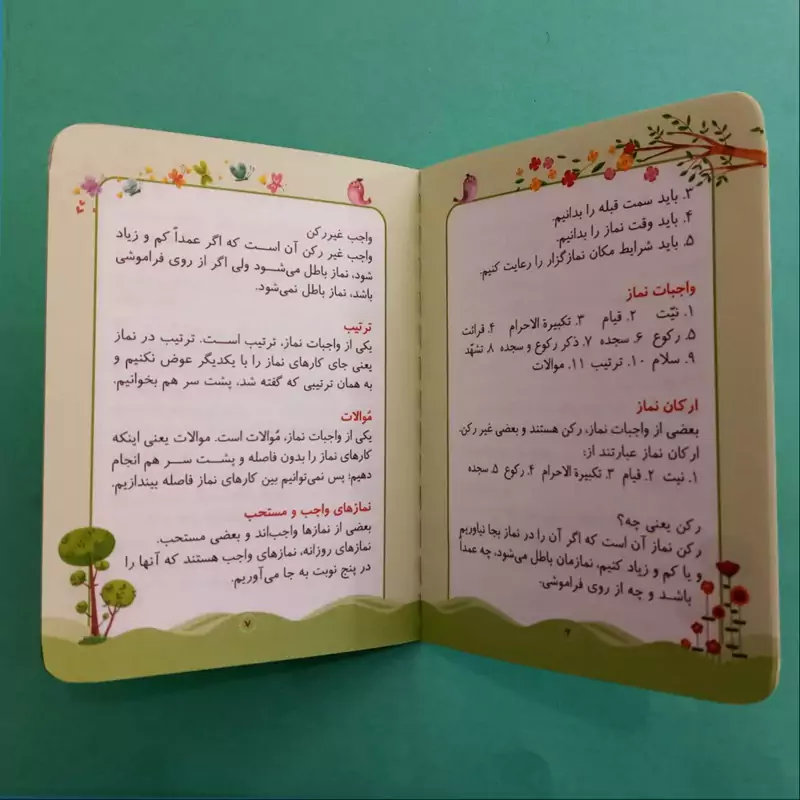 ۳. باید سمت قبله را بدانیم.
۴. باید وقت نماز را بدانیم.
۵. باید شرایط مکان نمازگزار را رعایت کنیم.
واجبات نماز
۱. نیّت ۲. قیام ۳. تکبیرة الاحرام ۴. قرائت
۵. رکوع ۶. سجده ۷. ذکر رکوع و سجده ۸. تشهّد
۹. سلام ۱۰. ترتیب ۱۱. موالات
ارکان نماز
بعضی از واجبات نماز، رکن هستند و بعضی غیر رکن.
ارکان نماز عبارتند از:
۱. نیت ۲. قیام ۳. تکبیرة الاحرام ۴. رکوع ۵. سجده
رکن یعنی چه؟
رکن نماز آن است که اگر آن را در نماز بجا نیاوریم
و یا کم و زیاد کنیم، نمازمان باطل می‌شود، چه عمداً
باشد و چه از روی فراموشی.
۶
واجب غیررکن
واجب غیر رکن آن است که اگر عمداً کم و زیاد
شود، نماز باطل می‌شود ولی اگر از روی فراموشی
باشد، نماز باطل نمی‌شود.
ترتیب
یکی از واجبات نماز، ترتیب است. ترتیب در نماز
یعنی جای کارهای نماز را با یکدیگر عوض نکنیم و
به همان ترتیبی که گفته شد، پشت سر هم بخوانیم.
مُوالات
یکی از واجبات نماز، مُوالات است. موالات یعنی اینکه
کارهای نماز را بدون فاصله و پشت سر هم انجام
دهیم؛ پس نمی‌توانیم بین کارهای نماز فاصله بیندازیم.
نمازهای واجب و مستحب
بعضی از نمازها واجب‌اند و بعضی مستحب.
نمازهای روزانه، نمازهای واجب هستند که آنها را
در پنج نوبت به جا می‌آوریم.
۷